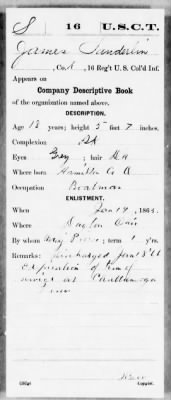 S | 16 | U.S.C.T.
James Sanderlin
, Co. , 16 Reg't U. S. Col'd Inf.
Appears on
Company Descriptive Book
of the organization named above.
DESCRIPTION.
Age 18 years; height 5 feet 7 inches.
Complexion
Eyes Grey; hair
Where born Hamilton Co O
Occupation Boatman
ENLISTMENT.
When Jan 14, 186
Where Dayton Ohio
By whom ; term 1 y'rs.
Remarks: Discharged
expiration of term of
at Chattanooga
Tenn
Copyist.